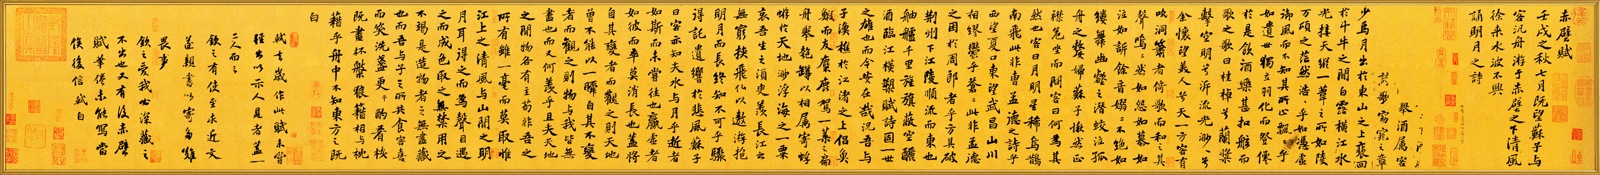 赤壁賦
壬戌之秋七月既望蘇子與
客泛舟游于赤壁之下清風
徐來水波不興
誦明月之詩
舉酒屬客
歌窈窕之章
少焉月出於東山之上裵回
於斗牛之間白露橫江水
光接天縱一葦之所如陵
萬頃之茫然浩浩乎如憑虛
御風而不知其所止飄飄乎
如遺世獨立羽化而登僊
於是飲酒樂甚扣舷而
歌之歌曰桂棹兮蘭槳
擊空明兮泝流光渺渺兮
余懷望美人兮天一方客有
吹洞簫者倚歌而和之其
聲嗚嗚然如怨如慕如
泣如訴餘音嫋嫋不絕如
縷舞幽壑之潛蛟泣孤
舟之嫠婦蘇子愀然正
襟危坐而問客曰何為其
然也客曰月明星稀烏鵲
南飛此非曹孟德之詩乎
西望夏口東望武昌山川
相繆鬱乎蒼蒼此非孟德
之困於周郎者乎方其破
荊州下江陵順流而東也
舳艫千里旌旗蔽空釃
酒臨江橫槊賦詩固一世
之雄也而今安在哉況吾與
子漁樵於江渚之上侶魚
鰕而友麋鹿駕一葉之扁
舟舉匏樽以相屬寄蜉
蝣於天地渺浮海之一粟
哀吾生之須臾羨長江之
無窮挾飛仙以遨遊抱
明月而長終知不可乎驟
得託遺響於悲風蘇子
曰客亦知夫水與月乎逝者
如斯而未嘗往也贏虛者
如彼而卒莫消長也蓋將
自其變者而觀之則天地
曾不能以一瞬自其不變
者而觀之則物與我皆無
盡也而又何羨乎且夫天地
之間物各有主苟非吾之
所有雖一毫而莫取惟
江上之清風與山間之明
月耳得之而為聲目遇
之而成色取之無禁用之
不竭是造物者之無盡藏
也而吾與子之所共食客喜
而笑洗盞更酌肴核
既盡杯盤狼籍相與枕
藉乎舟中不知東方之既
白
軾去歲作此賦未嘗
輕出以示人見者蓋一
二人而已
欽之有使至求近文
遂親書以寄多難
畏事
欽之愛我必深藏之
不出也又有後赤壁
賦筆倦未能寫當
俟後信軾白